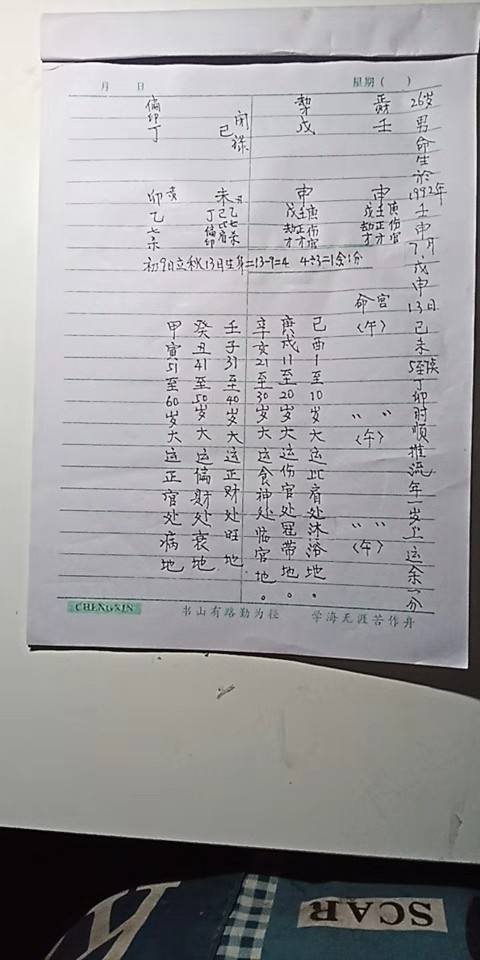 月 日 星期( )
26岁男命生於1992年壬申7月戊申13日己未丁卯时顺推流年一岁上运余一分
壬
申
戊壬庚
劫正伤
才才官
戊
申
戊壬庚
劫正伤
才才官
己
未
丁己乙
偏印
丁
卯
乙
初9日立秋13日生 =13-9=4 4÷3=1余1分
命宫
〈午〉
〃 〃
〈午〉
〃 〃
〈午〉
己酉1至10岁大运比肩处沐浴地。
庚戌11至20岁大运伤官处冠带地。
辛亥21至30岁大运食神处临官地。
壬子31至40岁大运正财处旺地
癸丑41至50岁大运偏财处衰地
甲寅51至60岁大运正官处病地
CHENGXIN 书山有路勤为径 学海无涯苦作舟
SCAR